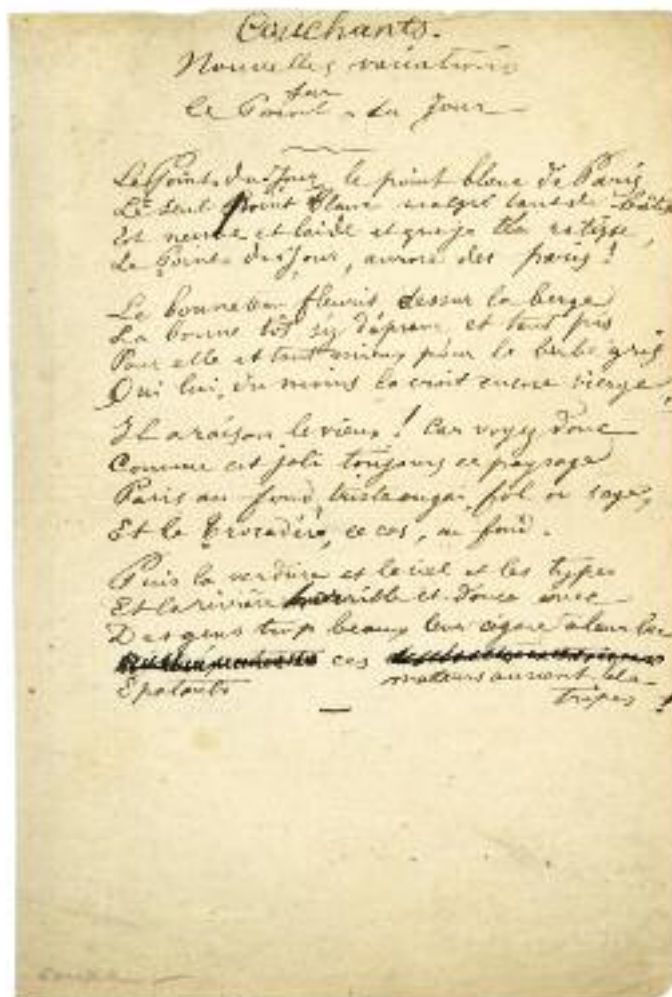 Couchants.
Nouvelles variations
sur
le Point du Jour
Le Point du Jour, le point blanc de Paris
Le seul point blanc malgré tant de
Et neuve et laide et que je ratisse,
Le Point du Jour, aurore des paris !
Le bonneteau fleurit dessur la berge
La bonne tôt s'y déprave, et tant pis
Pour elle et tant mieux pour le birbe gris
Qui lui, du moins la croit encore vierge,
Il a raison, le vieux ! Car voyez donc
Comme est joli toujours ce paysage
Paris au fond, triste ou gai, fol ou sage,
Et le Trocadéro, ce cas, au fond.
Puis la verdure et le ciel et les types
Et la rivière horrible et douce avec
Des gens trop beaux leur cigare à leur bec
ces
Epatants metteurs au vent de
tripes !